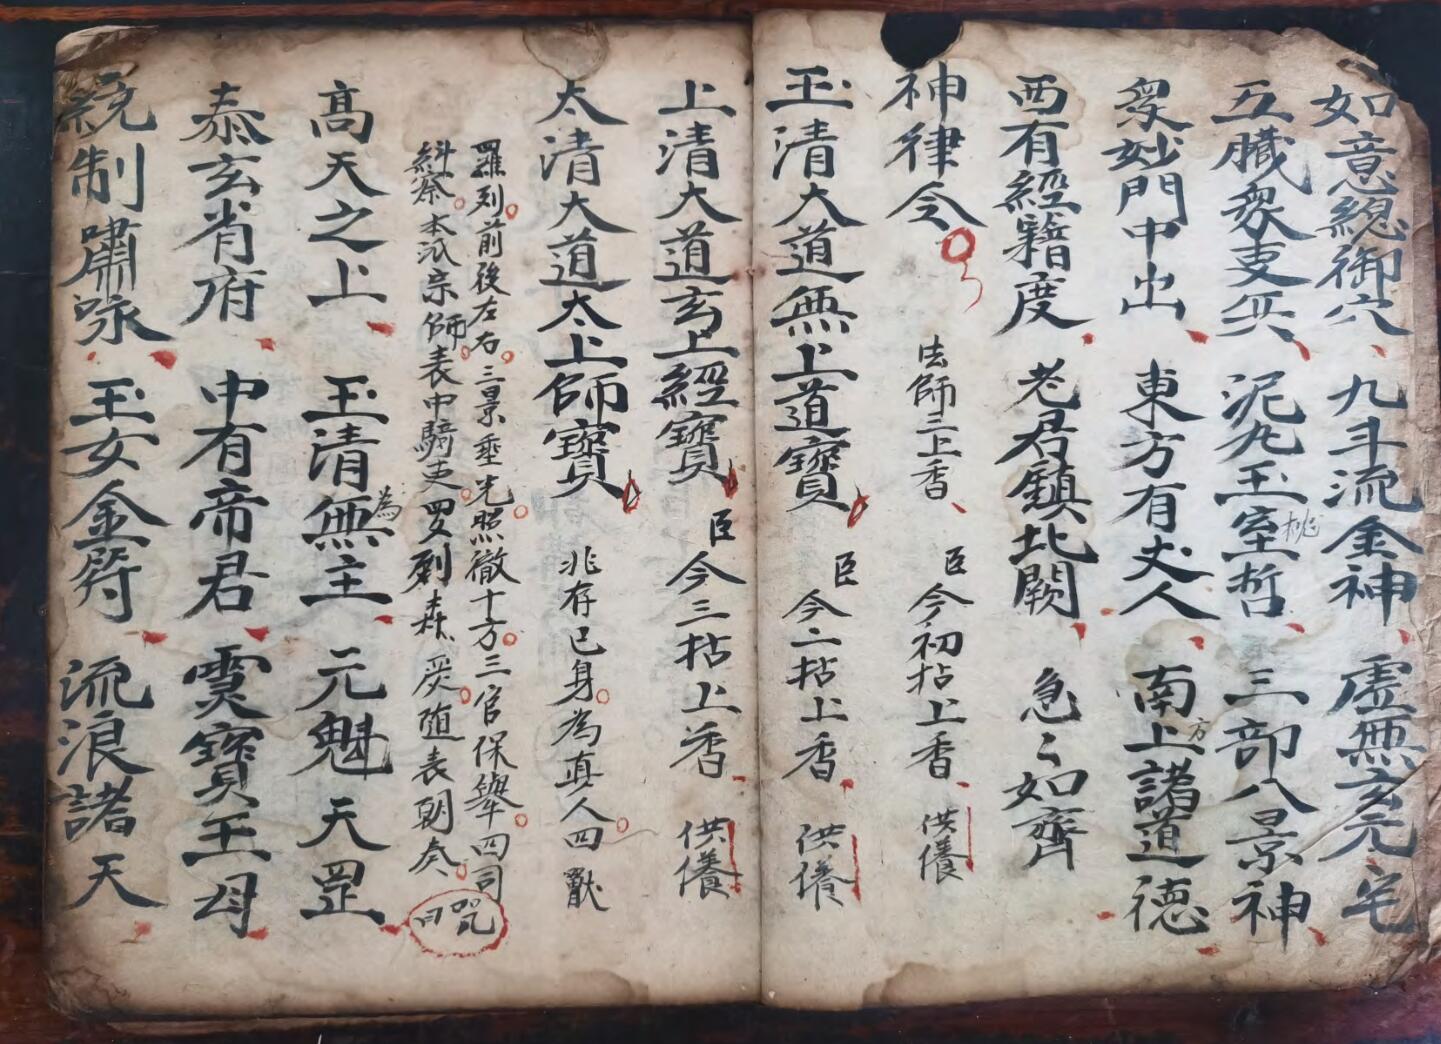 如意總御穴、九斗流金神、虛無玄元宅
五臟衆吏兵、泥丸玉室哲、三部八景神
桃
衆妙門中出、東方有丈人、南上諸道德
方
西有經籍度、老君鎮北闕、急々如齊
神律令
法師三上香、臣今初拈上香、供養
玉清大道無上道寶
臣今二拈上香、供養
上清大道玄上經寶
臣今三拈上香、供養
太清大道太上師寶
兆存已身。為真人。四獸
羅列。前後左右。三景垂光。照徹十方。三官保舉。四司
糾察。本派宗師。表中騎吏。罗列森炎。随表朝奏。
咒曰
高天之上、玉清無主、元魁天罡
為
泰玄省府、中有帝君、靈寶王母
統制嘯咏、玉女金符、流浪諸天